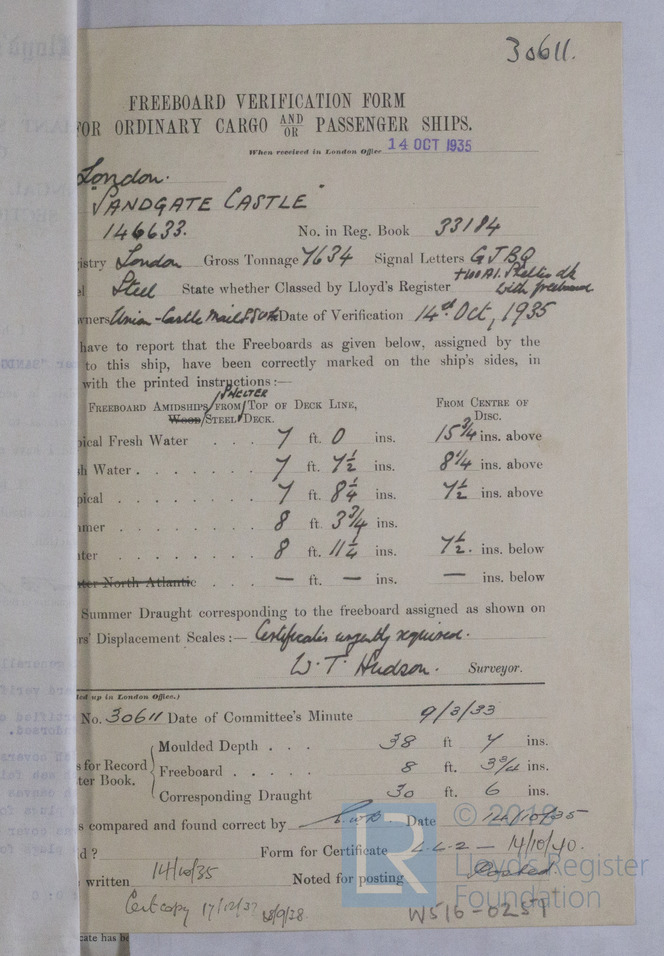 30611.
FREEBOARD VERIFICATION FORM
FOR ORDINARY CARGO AND/OR PASSENGER SHIPS.
When received in London Office 14 OCT 1935
London.
"SANDGATE CASTLE"
146633. No. in Reg. Book 33184
istry London Gross Tonnage 7634 Signal Letters GJBQ
+100A1. Shelter dk
Steel State whether Classed by Lloyd's Register with freeboard
wners Union-Castle Mail SS Co Ltd Date of Verification 14th Oct, 1935
have to report that the Freeboards as given below, assigned by the
to this ship, have been correctly marked on the ship's sides, in
with the printed instructions:—
SHELTER
FREEBOARD AMIDSHIPS FROM TOP OF DECK LINE, FROM CENTRE OF
Wood/STEEL DECK. DISC.
pical Fresh Water . . . 7 ft. 0 ins. 15 3/4 ins. above
sh Water . . . . . . . 7 ft. 7 1/2 ins. 8 1/4 ins. above
pical . . . . . . . . 7 ft. 8 1/4 ins. 7 1/2 ins. above
mer . . . . . . . . 8 ft. 3 3/4 ins.
ter . . . . . . . . 8 ft. 11 1/4 ins. 7 1/2 ins. below
ter North Atlantic . . . — ft. — ins. — ins. below
Summer Draught corresponding to the freeboard assigned as shown on
rs' Displacement Scales:— Certificates urgently required.
W. T. Hudson. Surveyor.
led up in London Office.)
No. 30611 Date of Committee's Minute 9/3/33
Moulded Depth . . . 38 ft 7 ins.
s for Record
Freeboard . . . . . 8 ft. 3 3/4 ins.
ter Book.
Corresponding Draught 30 ft. 6 ins.
s compared and found correct by Date 14/10/35
d? Form for Certificate L.L.2 — 14/10/40.
written 14/10/35 Noted for posting Posted
Cert copy 17/12/37 /9/38.
W516-0257
cate has be
© 2018
LR
Lloyd's Register
Foundation